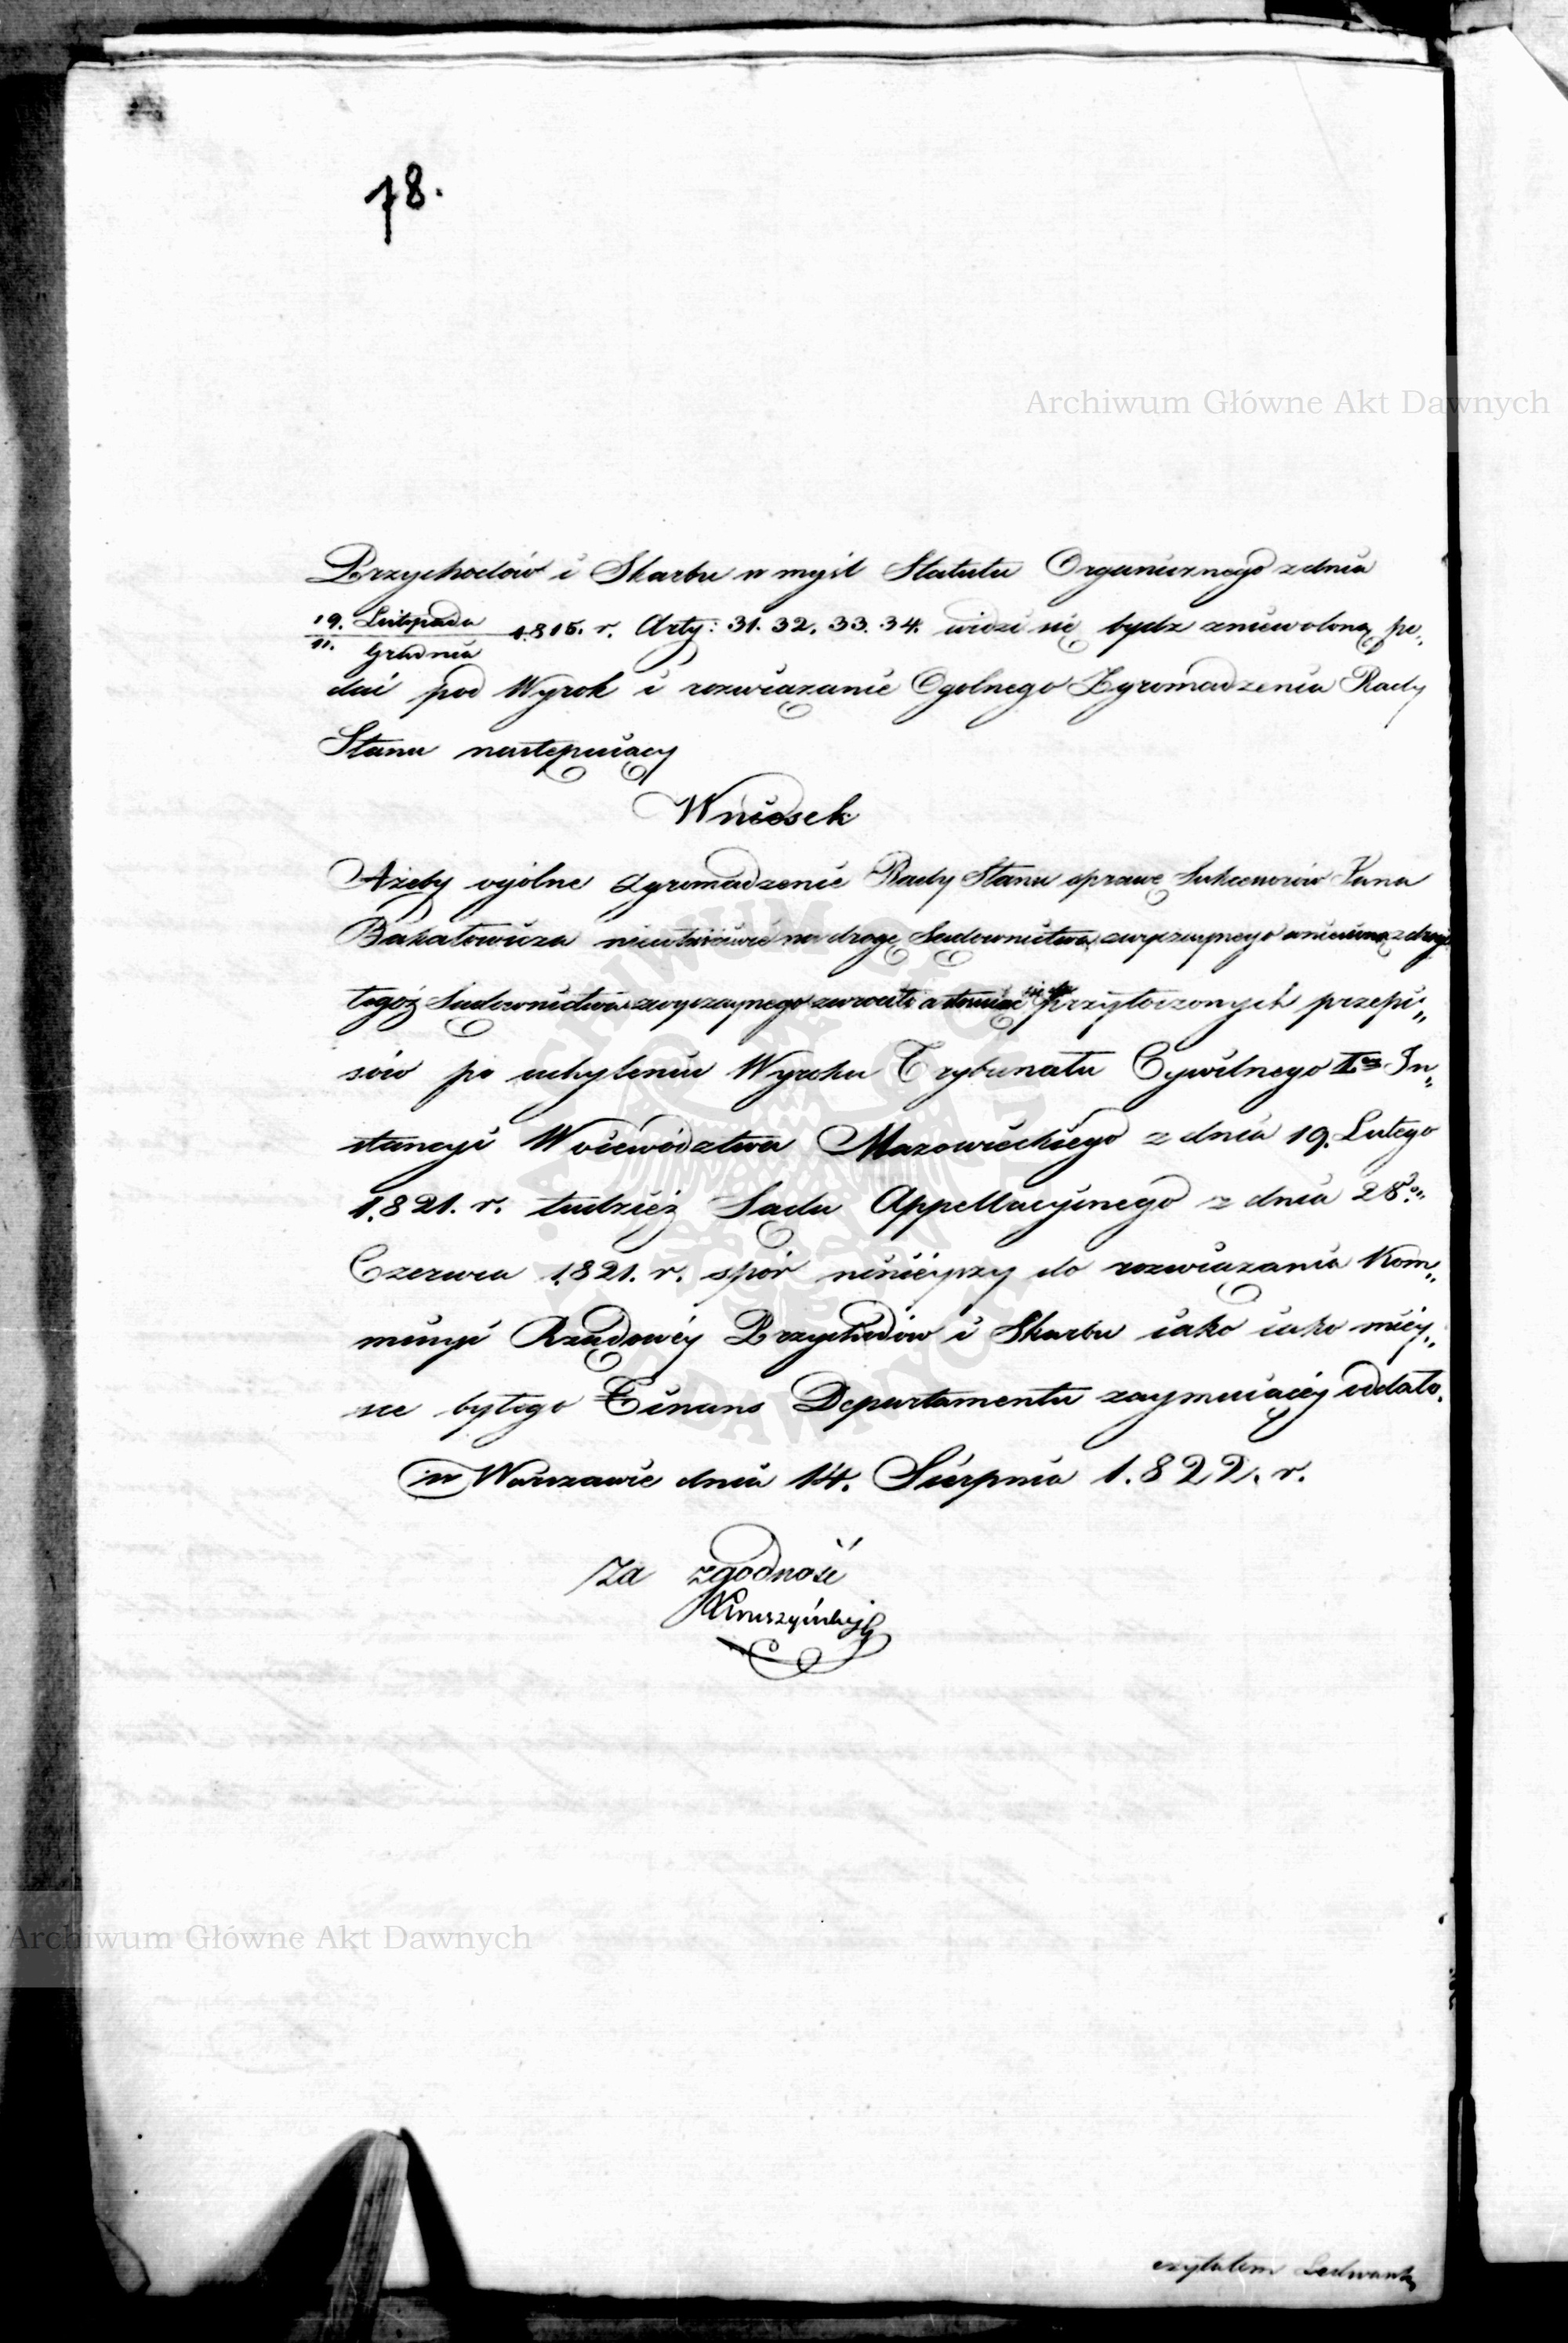 78.
Archiwum Główne Akt Dawnych
Przychodów i Skarbu w myśl Statutu Organicznego z dnia
19. Listopada / 11. Grudnia 1815. r. Arty: 31. 32. 33. 34. widzi się bydz zniewoloną po„
dać pod Wyrok i rozwiązanie Ogolnego Zgromadzenia Rady
Stanu następuiący
Wniosek
Ażeby ogólne zgromadzenie Rady Stanu sprawę Sukcessorów Jana
Bakałowicza niewłaściwie na drogę Sądownictwa zwyczaynego
tegoż Sądownictwa zwyczaynego zwróciło a przytoczonych przepi„
sów po uchyleniu Wyroku Trybunału Cywilnego I In„
stancyi Woiewództwa Mazowieckiego z dnia 19. Lutego
1.821. r. tudzież Sądu Appellacyinego z dnia 28o„
Czerwca 1821. r. spór ninieyszy do rozwiązania Kom„
missyi Rządowéy Przychodów i Skarbu iako iako miey„
sce byłego Finans Departamentu zaymuiącéy oddało.
w Warszawie dnia 14. Sierpnia 1.822. r.
Za zgodność
Archiwum Główne Akt Dawnych
czytałem